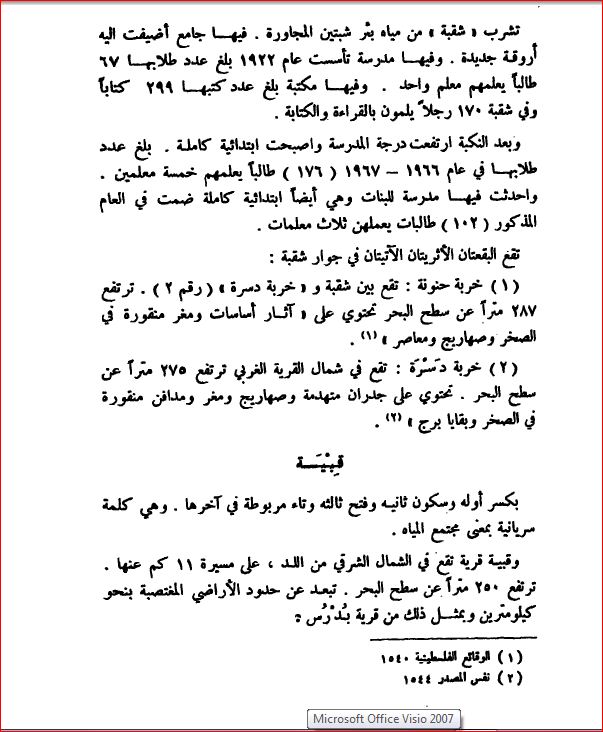 تشرب « شقبة » من مياه بئر شبتين المجاورة . فيهـا جامع أضيفت اليه
أروقة جديدة . وفيهـا مدرسة تأسست عام ١٩٢٢ بلغ عدد طلابهـا ٦٧
طالباً يعلمهم معلم واحد . وفيهـا مكتبة بلغ عدد كتبهـا ٢٩٩ كتاباً
وفي شقبة ١٧٠ رجلاً يلمون بالقراءة والكتابة .
وبعد النكبة ارتفعت درجة المدرسة واصبحت ابتدائية كاملة . بلغ عدد
طلابهـا في عام ١٩٦٦ – ١٩٦٧ ( ١٧٦ ) طالباً يعلمهم خمسة معلمين .
واحدثت فيهـا مدرسة للبنات وهي أيضاً ابتدائية كاملة ضمت في العام
المذكور ( ١٠٢ ) طالبات يعملهن ثلاث معلمات .
تقع البقعتان الأثريتان الآتيتان في جوار شقبة :
( ١ ) خربة حنونة : تقع بين شقبة و « خربة دسرة » ( رقم ٢ ) . ترتفع
٢٨٧ متراً عن سطح البحر تحتوي على « آثـار أساسات ومغر منقورة في
الصخر وصهاريج ومعاصر » (١) .
( ٢ ) خربة دَسْرَة : تقع في شمال القرية الغربي ترتفع ٢٧٥ متراً عن
سطح البحر . تحتوي على جدران متهدمة وصهاريج ومغر ومدافن منقورة
في الصخر وبقايا برج » (٢) .
قِبْيَـة
بكسر أوله وسكون ثانيـه وفتح ثالثه وتاء مربوطة في آخرها . وهي كلمة
سريانية بمعنى مجتمع المياه .
وقبية قرية تقع في الشمال الشرقي من اللـد ، على مسيرة ١١ كم عنها .
ترتفع ٢٥٠ متراً عن سطح البحر . تبعـد عن حدود الأراضي المغتصبة بنحو
كيلومترين وبمثـل ذلك من قرية بُدْرُس :
( ١ ) الوقائع الفلسطينية ١٥٤٠
( ٢ ) نفس المصدر ١٥٤٤
Microsoft Office Visio 2007